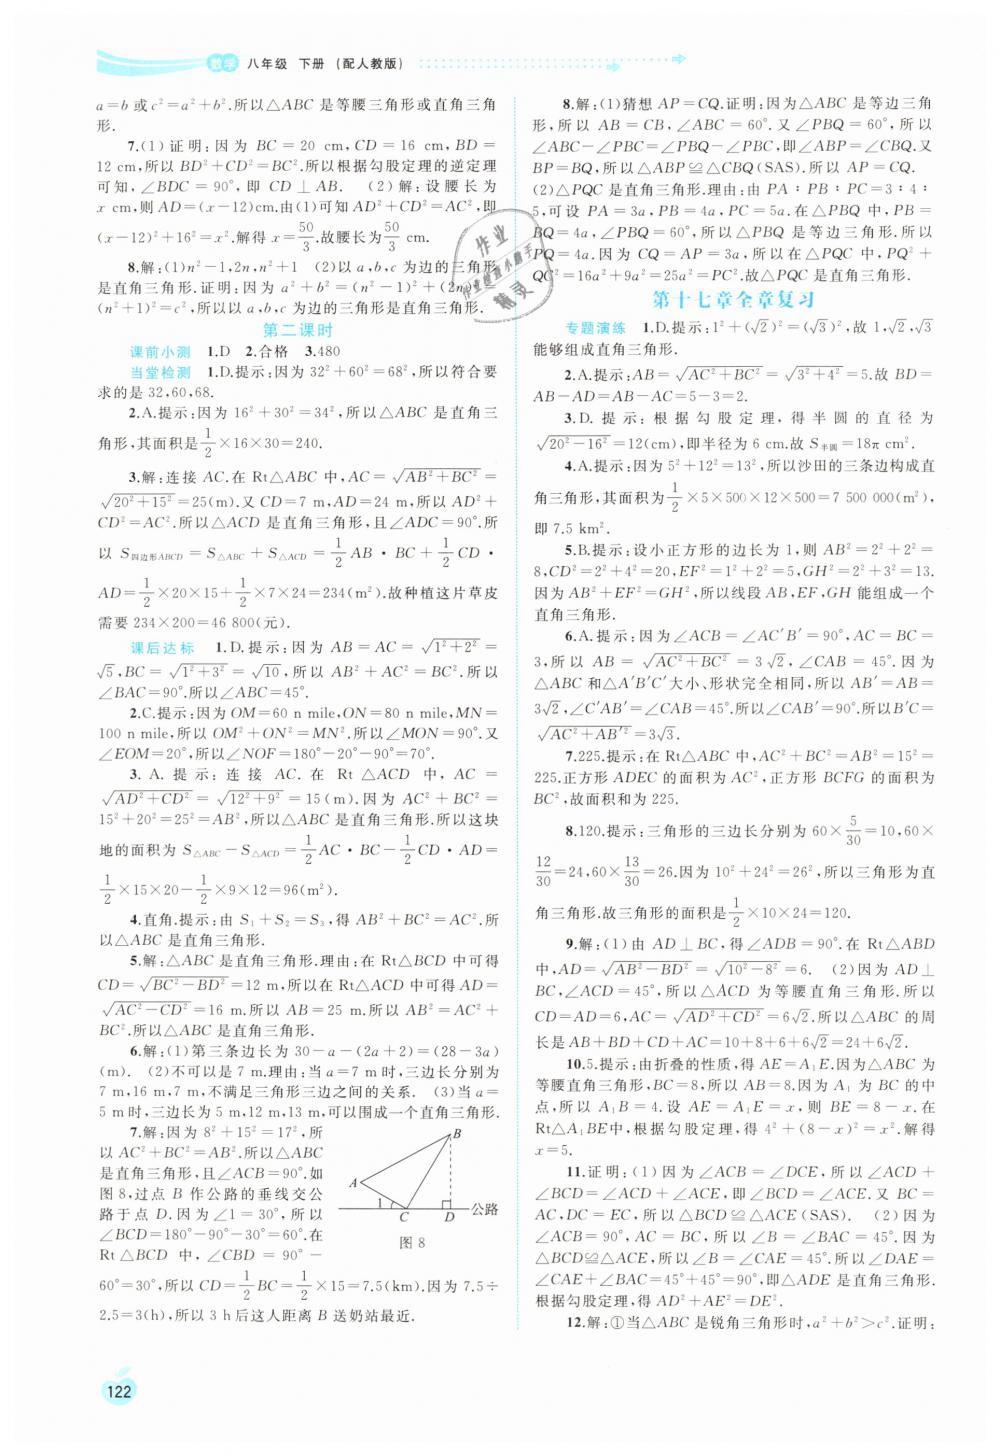 数学 八年级 下册 (配人教版)
a=b或c²=a²+b².所以△ABC是等腰三角形或直角三角
形.
7.(1)证明:因为 BC=20 cm,CD=16 cm,BD=
12 cm,所以BD²+CD²=BC².所以根据勾股定理的逆定理
可知,∠BDC=90°,即 CD⊥AB. (2)解:设腰长为
x cm,则AD=(x-12)cm.由(1)可知AD²+CD²=AC²,即
(x-12)²+16²=x².解得x=50/3.故腰长为50/3 cm.
8.解:(1)n²-1,2n,n²+1 (2)以a,b,c为边的三角形
是直角三角形.证明:因为a²+b²=(n²-1)²+(2n)²
(n²+1)²=c²,所以以a,b,c为边的三角形是直角三角形.
第二课时
课前小测 1.D 2.合格 3.480
当堂检测 1.D.提示:因为32²+60²=68²,所以符合要
求的是32,60,68.
2.A.提示:因为16²+30²=34²,所以△ABC是直角三
角形,其面积是1/2×16×30=240.
3.解:连接AC.在Rt△ABC中,AC=√(AB²+BC²)=
√(20²+15²)=25(m).又CD=7 m,AD=24 m,所以AD²+
CD²=AC².所以△ACD是直角三角形,且∠ADC=90°.所
以 S四边形ABCD=S△ABC+S△ACD=1/2 AB·BC+1/2 CD·
AD=1/2×20×15+1/2×7×24=234(m²).故种植这片草皮
需要234×200=46 800(元).
课后达标 1.D.提示:因为AB=AC=√(1²+2²)=
√5,BC=√(1²+3²)=√10,所以AB²+AC²=BC².所以
∠BAC=90°.所以∠ABC=45°.
2.C.提示:因为OM=60 n mile,ON=80 n mile,MN=
100 n mile,所以OM²+ON²=MN².所以∠MON=90°.又
∠EOM=20°,所以∠NOF=180°-20°-90°=70°.
3.A.提示:连接 AC.在 Rt△ACD 中,AC=
√(AD²+CD²)=√(12²+9²)=15(m).因为AC²+BC²=
15²+20²=25²=AB²,所以△ABC是直角三角形.所以这块
地的面积为S△ABC-S△ACD=1/2 AC·BC-1/2 CD·AD=
1/2×15×20-1/2×9×12=96(m²).
4.直角.提示:由S₁+S₂=S₃,得AB²+BC²=AC².所
以△ABC是直角三角形.
5.解:△ABC是直角三角形.理由:在Rt△BCD中可得
CD=√(BC²-BD²)=12 m,所以在Rt△ACD中可得AD=
√(AC²-CD²)=16 m.所以AB=25 m.所以AB²=AC²+
BC².所以△ABC是直角三角形.
6.解:(1)第三条边长为30-a-(2a+2)=(28-3a)
(m). (2)不可以是7 m.理由:当a=7 m时,三边长分别为
7 m,16 m,7 m,不满足三角形三边之间的关系. (3)当a=
5 m时,三边长为5 m,12 m,13 m,可以围成一个直角三角形.
7.解:因为8²+15²=17²,所
以AC²+BC²=AB².所以△ABC
是直角三角形,且∠ACB=90°.如
图8,过点B作公路的垂线交公
路于点D.因为∠1=30°,所以
∠BCD=180°-90°-30°=60°.在
Rt△BCD中,∠CBD=90°-
60°=30°,所以CD=1/2 BC=1/2×15=7.5(km).因为7.5÷
2.5=3(h),所以3 h后这人距离B送奶站最近.
B
A
1
C
D
公路
图8
8.解:(1)猜想AP=CQ.证明:因为△ABC是等边三角
形,所以AB=CB,∠ABC=60°.又∠PBQ=60°,所以
∠ABC-∠PBC=∠PBQ-∠PBC,即∠ABP=∠CBQ.又
BP=BQ,所以△ABP≌△CBQ(SAS).所以AP=CQ.
(2)△PQC是直角三角形.理由:由PA:PB:PC=3:4:
5,可设PA=3a,PB=4a,PC=5a.在△PBQ中,PB=
BQ=4a,∠PBQ=60°,所以△PBQ是等边三角形.所以
PQ=4a.因为CQ=AP=3a,所以在△PQC中,PQ²+
QC²=16a²+9a²=25a²=PC².故△PQC是直角三角形.
第十七章全章复习
专题演练 1.D.提示:1²+(√2)²=(√3)²,故1,√2,√3
能够组成直角三角形.
2.A.提示:AB=√(AC²+BC²)=√(3²+4²)=5.故BD=
AB-AD=AB-AC=5-3=2.
3.D.提示:根据勾股定理,得半圆的直径为
√(20²-16²)=12(cm),即半径为6 cm.故S半圆=18π cm².
4.A.提示:因为5²+12²=13²,所以沙田的三条边构成直
角三角形,其面积为1/2×5×500×12×500=7 500 000(m²),
即7.5 km².
5.B.提示:设小正方形的边长为1,则AB²=2²+2²=
8,CD²=2²+4²=20,EF²=1²+2²=5,GH²=2²+3²=13.
因为AB²+EF²=GH²,所以线段AB,EF,GH能组成一个
直角三角形.
6.A.提示:因为∠ACB=∠AC′B′=90°,AC=BC=
3,所以AB=√(AC²+BC²)=3√2,∠CAB=45°.因为
△ABC和△A′B′C′大小、形状完全相同,所以AB′=AB=
3√2,∠C′AB′=∠CAB=45°.所以∠CAB′=90°.所以B′C=
√(AC²+AB′²)=3√3.
7.225.提示:在Rt△ABC中,AC²+BC²=AB²=15²=
225.正方形ADEC的面积为AC²,正方形BCFG的面积为
BC²,故面积和为225.
8.120.提示:三角形的三边长分别为60×5/30=10,60×
12/30=24,60×13/30=26.因为10²+24²=26²,所以三角形为直
角三角形.故三角形的面积是1/2×10×24=120.
9.解:(1)由AD⊥BC,得∠ADB=90°.在Rt△ABD
中,AD=√(AB²-BD²)=√(10²-8²)=6. (2)因为AD⊥
BC,∠ACD=45°,所以△ACD为等腰直角三角形.所以
CD=AD=6,AC=√(AD²+CD²)=6√2.所以△ABC的周
长是AB+BD+CD+AC=10+8+6+6√2=24+6√2.
10.5.提示:由折叠的性质,得AE=A₁E.因为△ABC为
等腰直角三角形,BC=8,所以AB=8.因为A₁为BC的中
点,所以A₁B=4.设AE=A₁E=x,则BE=8-x.在
Rt△A₁BE中,根据勾股定理,得4²+(8-x)²=x².解得
x=5.
11.证明:(1)因为∠ACB=∠DCE,所以∠ACD+
∠BCD=∠ACD+∠ACE,即∠BCD=∠ACE.又BC=
AC,DC=EC,所以△BCD≌△ACE(SAS). (2)因为
∠ACB=90°,AC=BC,所以∠B=∠BAC=45°.因为
△BCD≌△ACE,所以∠B=∠CAE=45°.所以∠DAE=
∠CAE+∠BAC=45°+45°=90°,即△ADE是直角三角形.
根据勾股定理,得AD²+AE²=DE².
12.解:①当△ABC是锐角三角形时,a²+b²>c².证明:
122